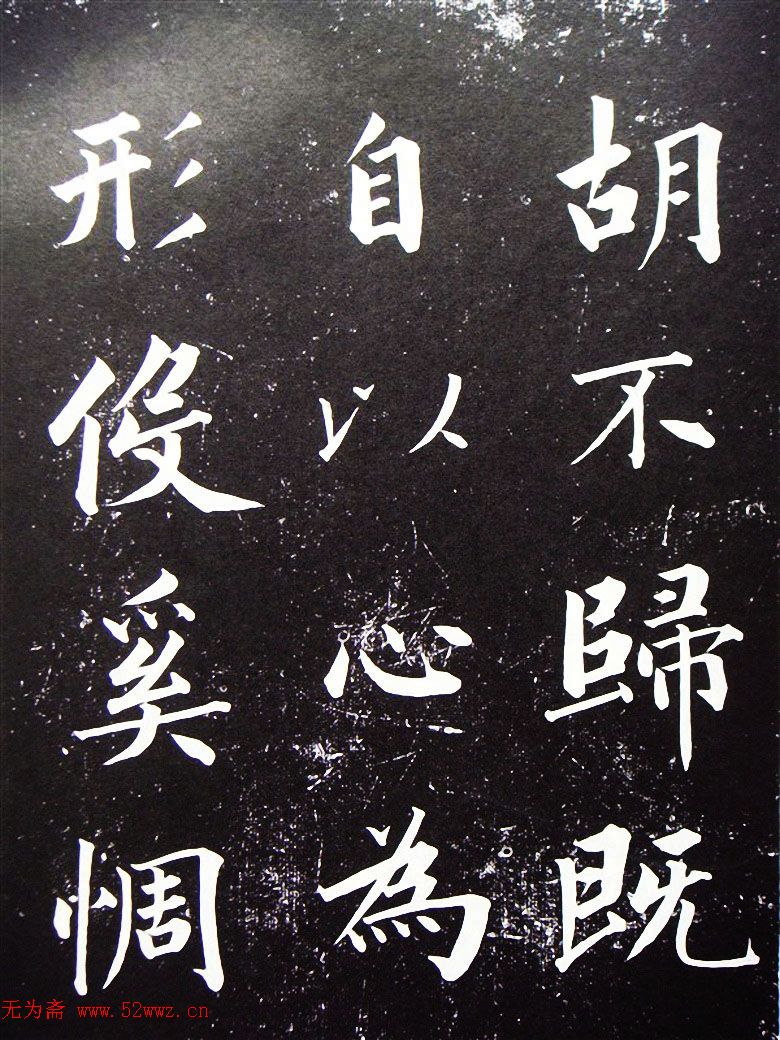 胡不歸既
自以心為
形役奚惆
无为斋 www.52wwz.cn